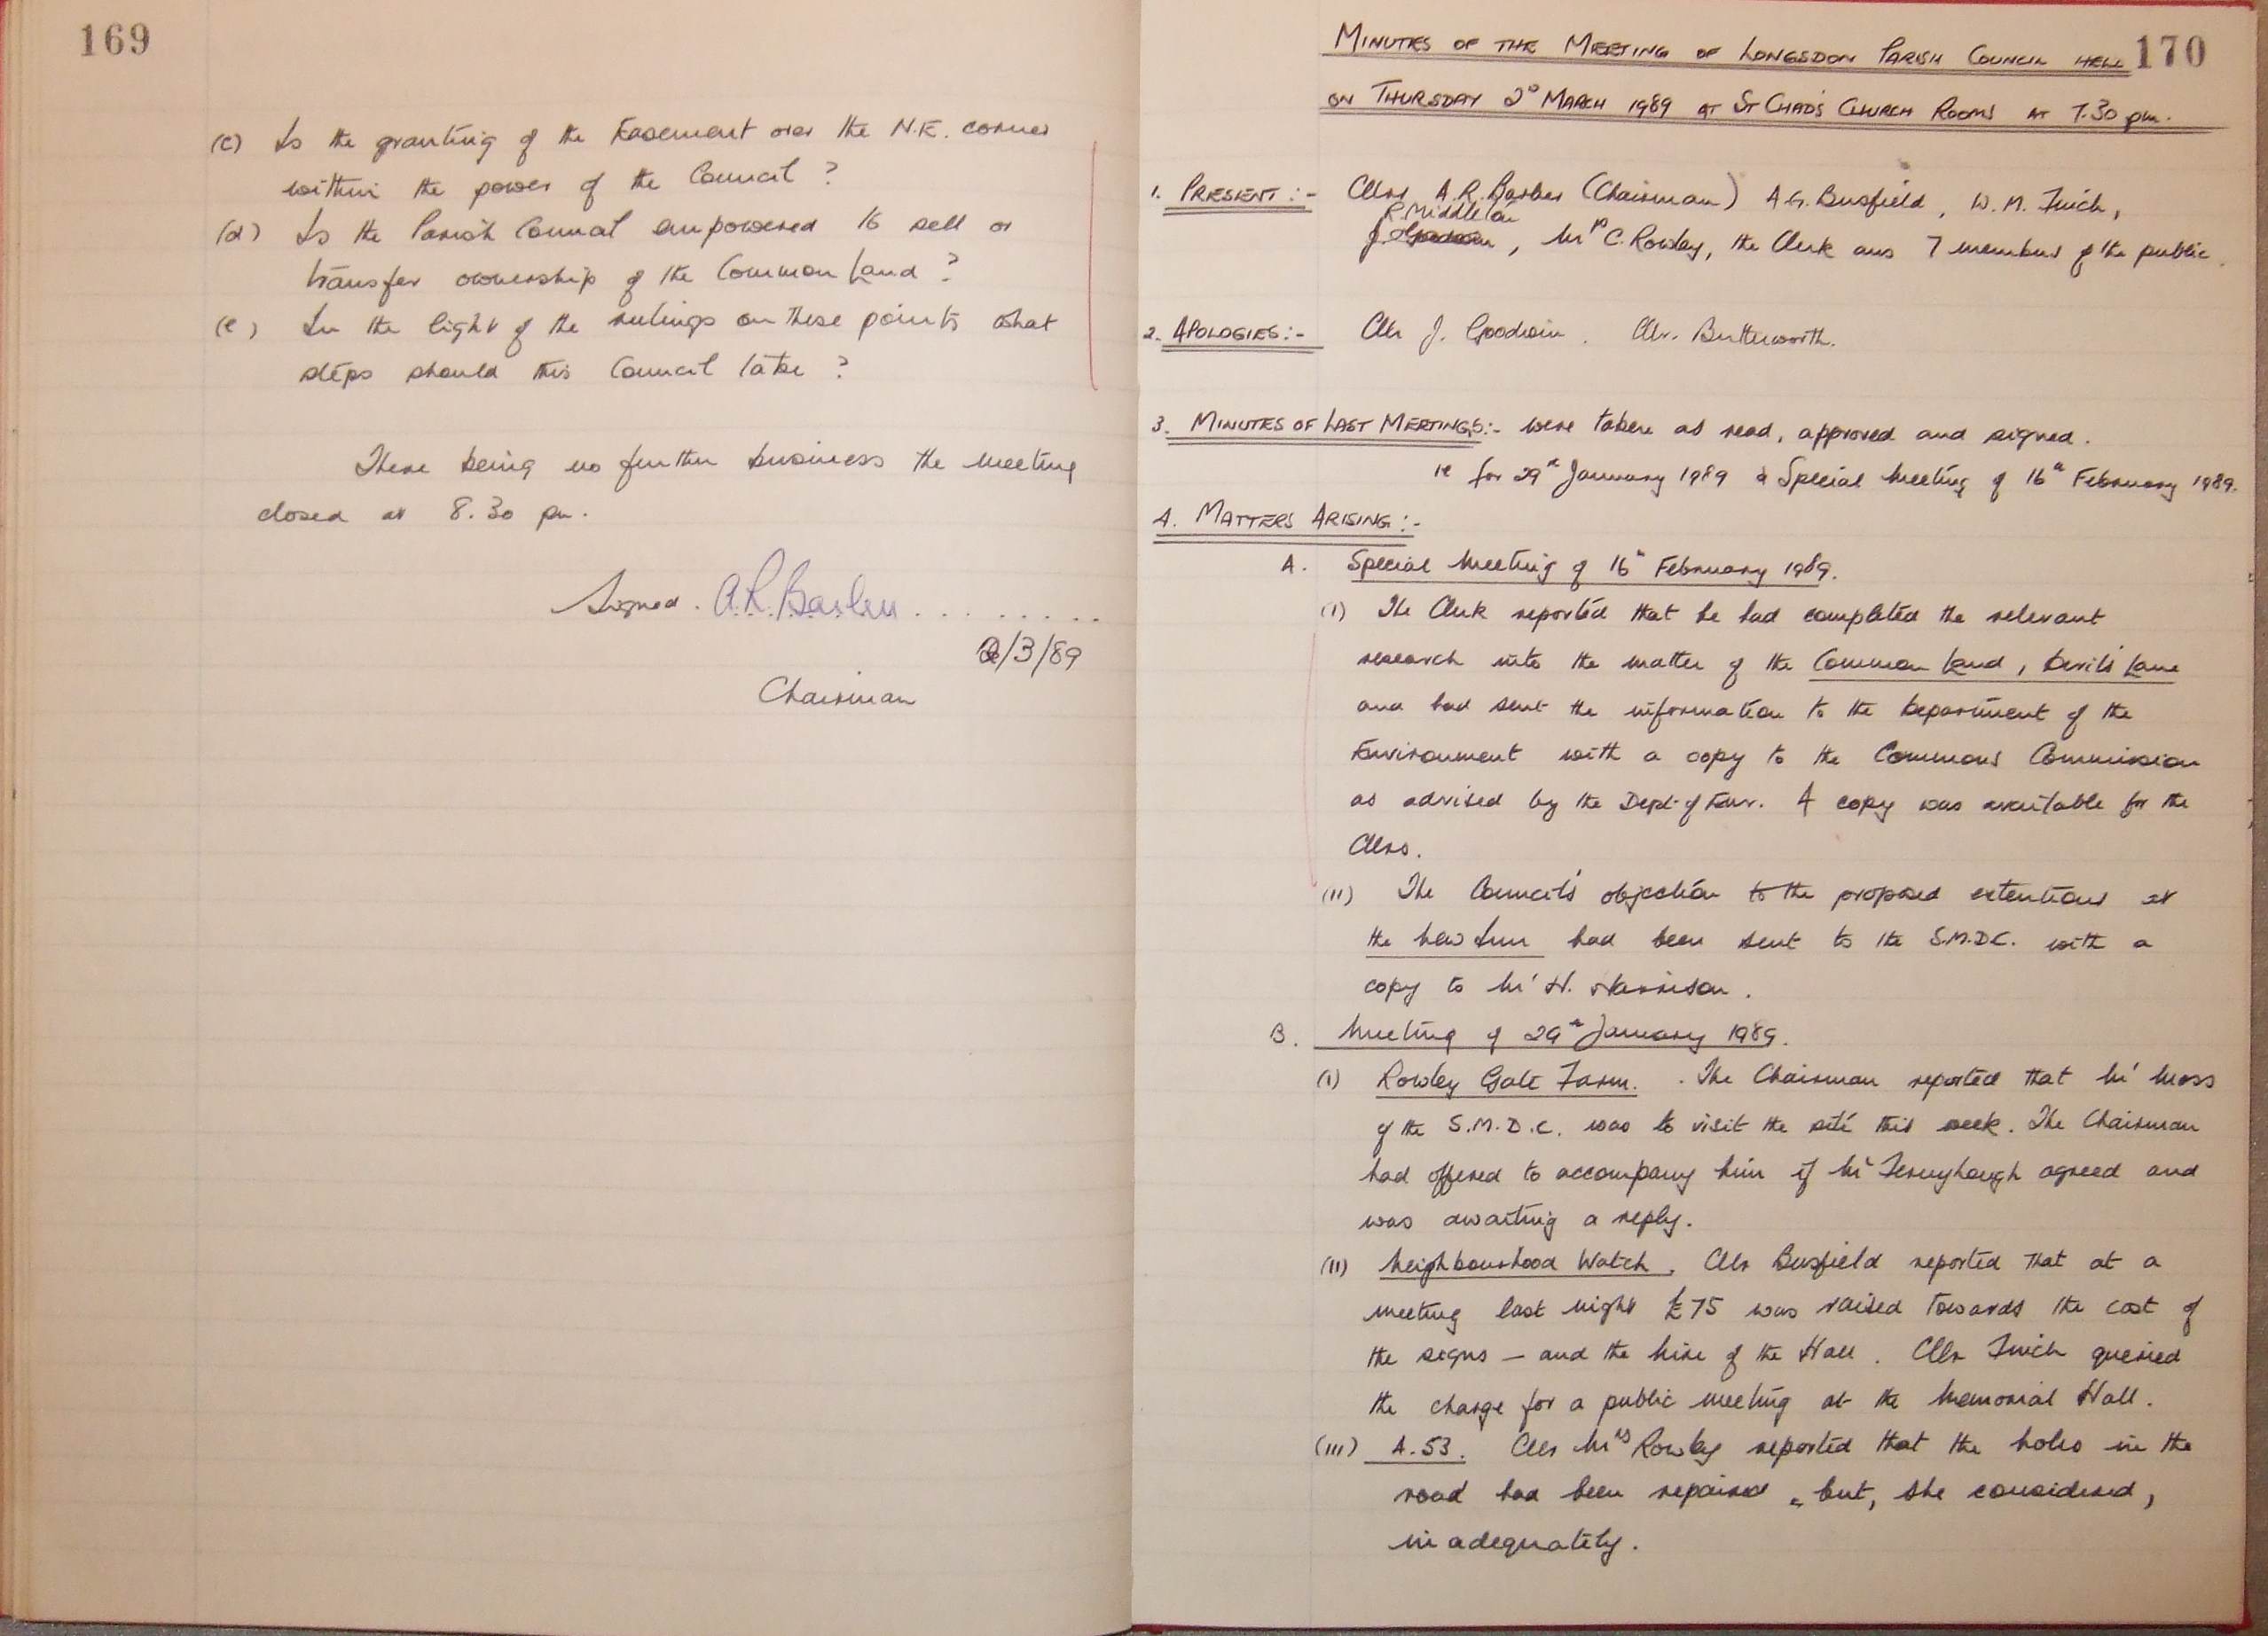 169
(c) Is the granting of the Easement over the N.E. corner
within the power of the Council ?
(d) Is the Parish Council empowered to sell or
transfer ownership of the Common Land ?
(e) In the light of the rulings on these points what
steps should this Council take ?
There being no further business the meeting
closed at 8.30 pm.
Signed. A.R. Barber . . . . . . . .
2/3/89
Chairman
170
MINUTES OF THE MEETING OF LONGSDON PARISH COUNCIL HELD
ON THURSDAY 2D MARCH 1989 AT ST CHAD'S CHURCH ROOMS AT 7.30 pm.
1. PRESENT :- Cllrs A.R. Barber (Chairman) A.G. Busfield, W.M. Finch,
R. Middleton
J. Goodwin, Mrs C. Rowley, the Clerk and 7 members of the public.
2. APOLOGIES :- Cllr J. Goodwin. Cllr. Butterworth.
3. MINUTES OF LAST MEETINGS :- were taken as read, approved and signed.
ie for 29th January 1989 & Special Meeting of 16th February 1989.
4. MATTERS ARISING :-
A. Special Meeting of 16th February 1989.
(i) The Clerk reported that he had completed the relevant
research into the matter of the Common Land, Devil's Lane
and had sent the information to the Department of the
Environment with a copy to the Commons Commission
as advised by the Dept. of Envr. A copy was available for the
Cllrs.
(ii) The Council's objection to the proposed extentions at
the New Inn had been sent to the S.M.D.C. with a
copy to Mr H. Harrison.
B. Meeting of 29th January 1989.
(i) Rowley Gate Farm. . The Chairman reported that Mr Moss
of the S.M.D.C. was to visit the site this week. The Chairman
had offered to accompany him if Mr Fernyhough agreed and
was awaiting a reply.
(ii) Neighbourhood Watch. Cllr Busfield reported that at a
meeting last night £75 was raised towards the cost of
the signs - and the hire of the Hall. Cllr Finch queried
the charge for a public meeting at the Memorial Hall.
(iii) A.53. Cllr Mrs Rowley reported that the holes in the
road had been repaired, but, she considered,
inadequately.